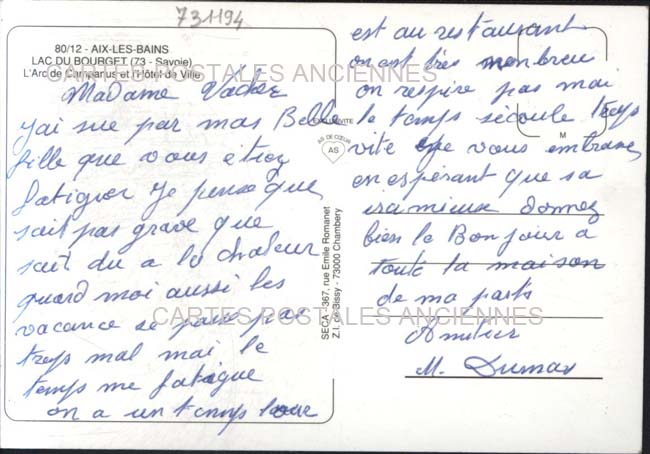 731194
80/12 - AIX-LES-BAINS
LAC DU BOURGET (73 - Savoie)
L'Arc de Campanus et l'Hôtel de Ville
CARTES POSTALES ANCIENNES
Madame
j'ai sue par mas Belle
fille que vous étiez
fatiguer je pense que
sait pas grave que
sait du a la chaleur
quand moi aussi les
vacance se passe pas
trop mal mai le
temps me fatigue
on a un temps
EXCLUSIVITE
AS DE CŒUR
AS
SECA - 367, rue Emile Romanet
Z.I. de Bissy - 73000 Chambery
M
est au restaurant
on est très nombreu
on respire pas mai
le temps sécoule trop
vite que vous embrane
en espérant que sa
ira mieux donnez
bien le Bonjour a
toute la maison
de ma parts
CARTES POSTALES ANCIENNES
Amitier
M. Dumas